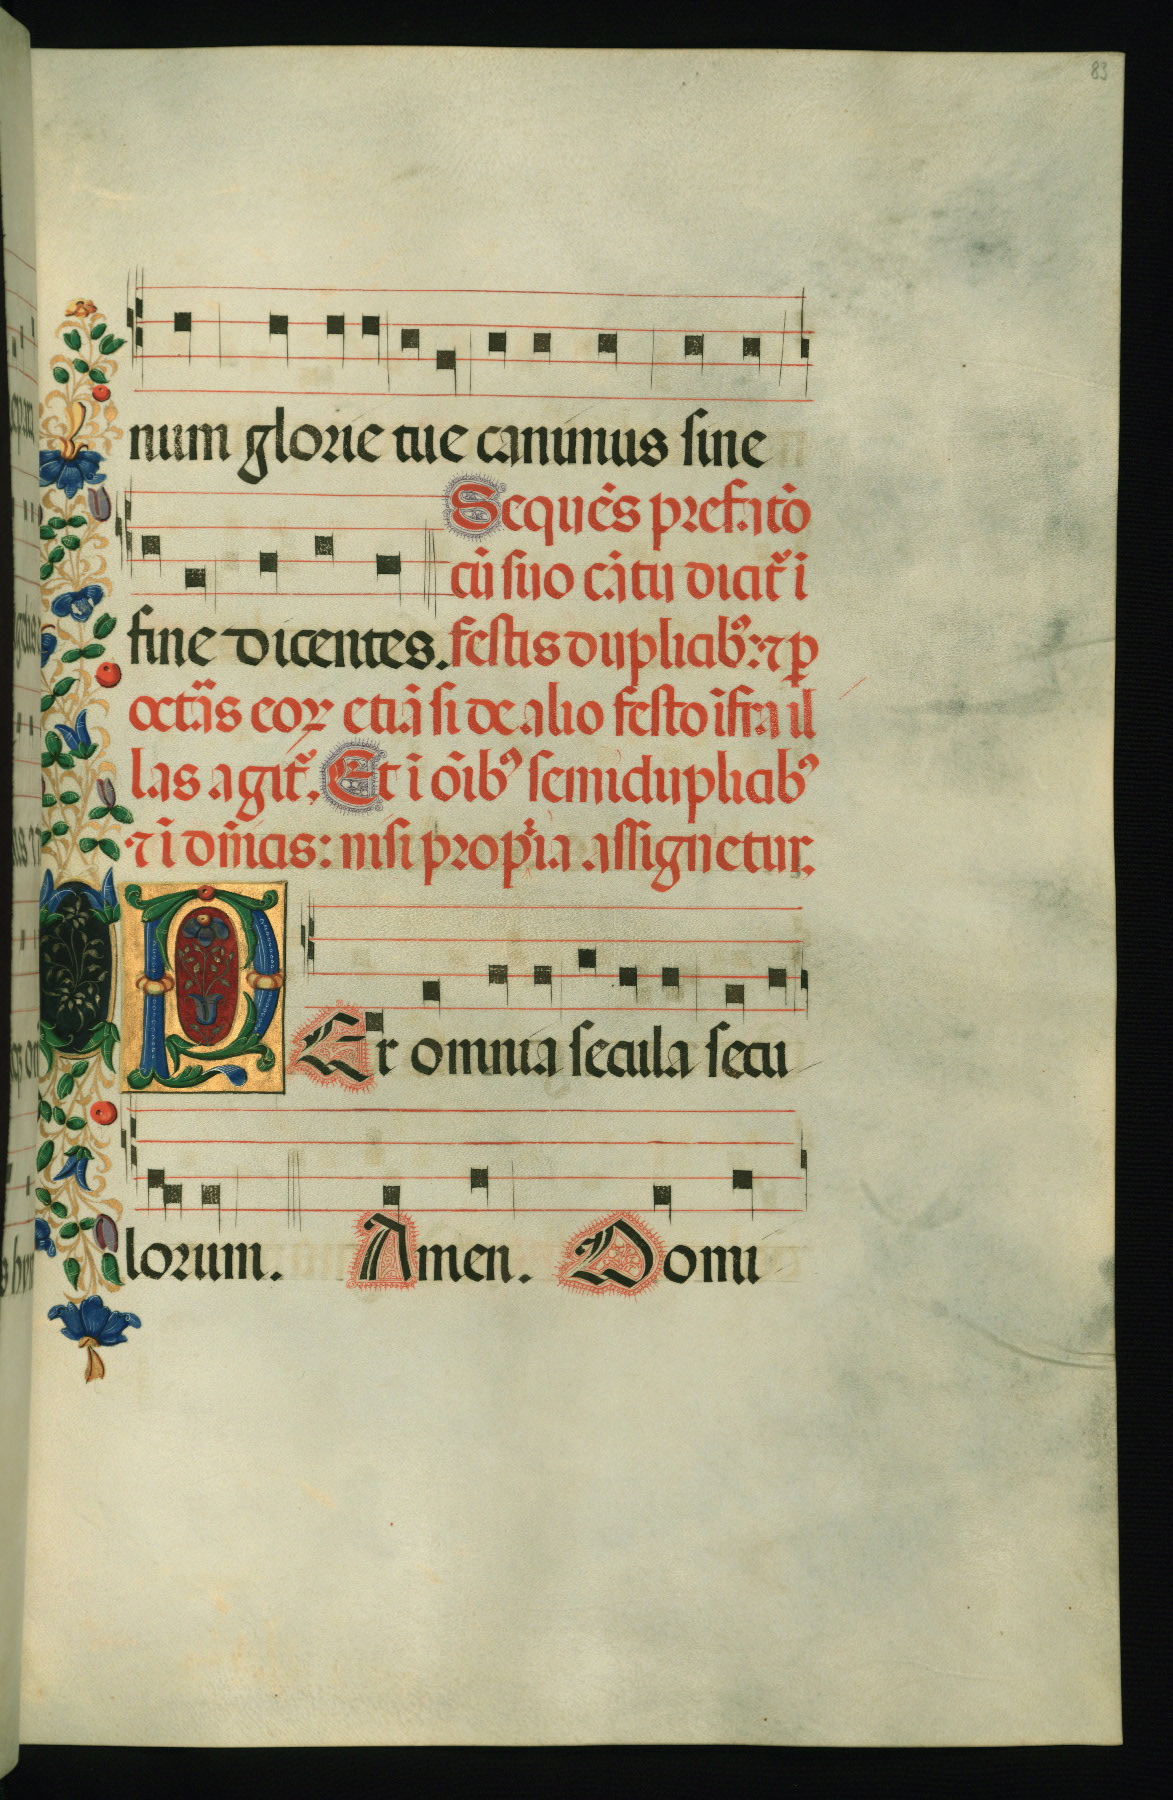 83
num glorie tue canimus sine
Sequẽs prefatõ
cũ suo cãtu dicit᷑ ĩ
fine dicentes. festis duplicibꝰ: ⁊ ꝑ
octãs eoꝝ etiã si de alio festo ĩfra il
las agit᷑. Et ĩ oĩbꝰ semiduplicibꝰ
⁊ ĩ dñicis: nisi propria assignetur.
PEr omnia secula secu
lorum. Amen. Domi